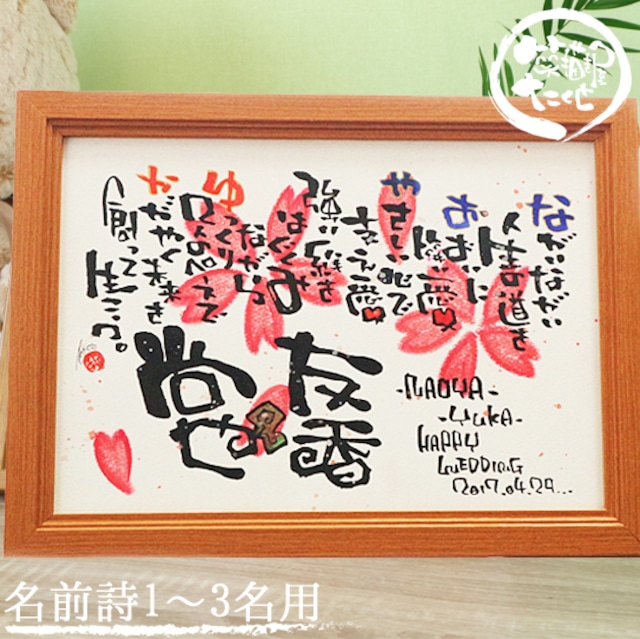 ながいながい
人生の道を
おおいに
やさしい心で
支え愛
強い絆を
はぐくみ
ながら
ゆっくり
2人のペースで
かがやく未来を
創って生こう。
友香
尚也
-NAOYA-
-YUKA-
HAPPY
WEDDING
2017.04.29...
名前詩1～3名用